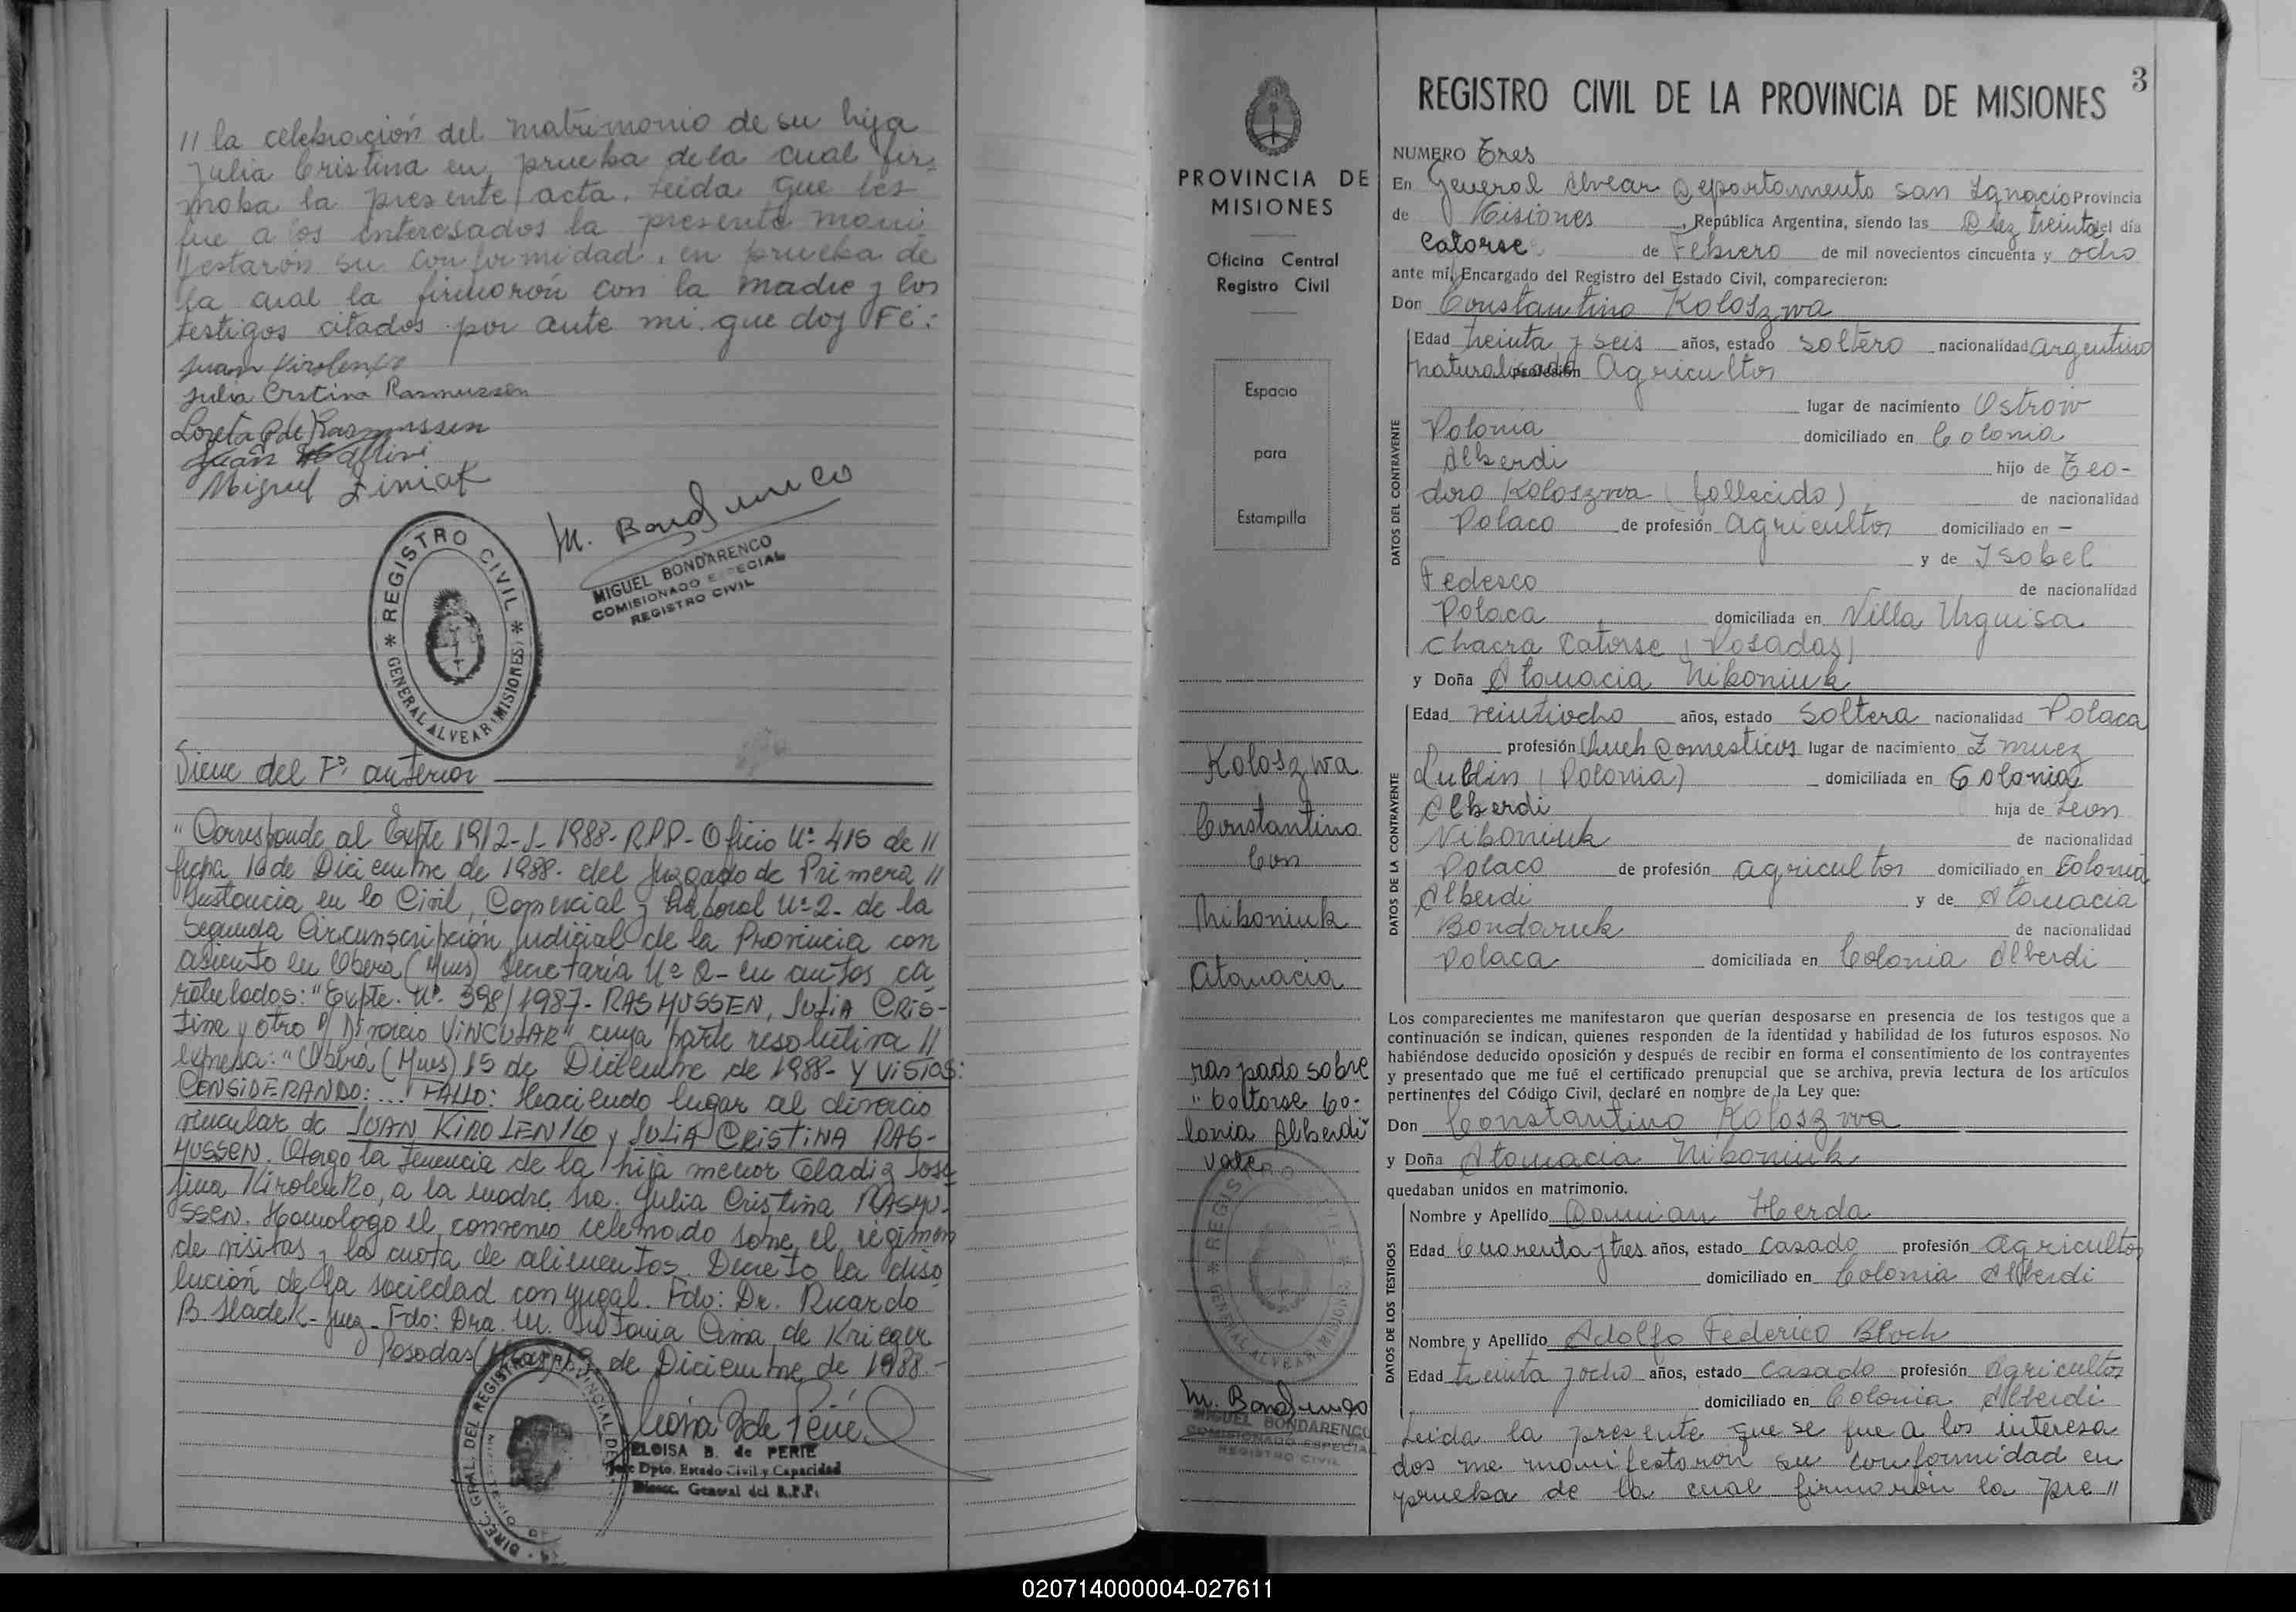 // la celebración del matrimonio de su hija
Julia Cristina en prueba de la cual fir-
moba la presente acta. Leida que les
fue a los interesados la presente mani
festaron su conformidad, en prueba de
la cual la firmorón con la madre y los
testigos citados por ante mi que doy Fé:
Juan Kirolenko
Julia Crstina Rasmussen
Loreta P de Rasmussen
Juan
Miguel Ziniak
M. Bondarenco
MIGUEL BONDARENCO
COMISIONADO ESPECIAL
REGISTRO CIVIL
* REGISTRO CIVIL *
GENERAL ALVEAR (MISIONES)
Viene del Fº anterior
"Corresponde al Expte 1912-J-1988-R.P.P-Oficio Nº 415 de //
fecha 16 de Diciembre de 1988. del Juzgado de Primera //
Instancia en lo Civil, Comercial y Laboral Nº 2- de la
Segunda Circunscripción Judicial de la Provincia con
asiento en Oberá (Mnes) Secretaría Nº 2- en autos ca
ratulados: "Expte. Nº. 398/1987- RASMUSSEN, JULIA CRIS-
Tina y otro s/ Divorcio VINCULAR" cuya parte resolutiva //
expresa: "Oberá (Mnes) 15 de Diciembre de 1988- Y VISTOS:
CONSIDERANDO: ... FALLO: Haciendo lugar al divorcio
vincular de JUAN KIROLENKO y JULIA CRISTINA RAS-
MUSSEN. Otorgo la tenencia de la hija menor Gladis Jose
fina Kirolenko, a la madre, Sra. Julia Cristina RASMU-
SSEN. Homologo el convenio celebrado sobre el régimen
de visitas y la cuota de alimentos. Decreto la diso
lución de la sociedad conyugal. Fdo: Dr. Ricardo
B. Sladek- Juez- Fdo: Dra. M. Antonia Cima de Krieger
Posadas de Diciembre de 1988.-
ELOISA B. de PERIE
Jefe Dpto. Estado Civil y Capacidad
Direcc. General del R.P.P.
DIREC. GRAL. DEL REGISTRO PROVINCIAL DE
3
REGISTRO CIVIL DE LA PROVINCIA DE MISIONES
PROVINCIA DE
MISIONES
Oficina Central
Registro Civil
Espacio
para
Estampilla
Koloszwa
Constantino
Con
Niboniuk
Atanacia
raspado sobre
"Cattorse Co-
lonia Alberdi"
Vale
* REGISTRO CIVIL *
GENERAL ALVEAR MISIONES
M. Bondarenco
MIGUEL BONDARENCO
COMISIONADO ESPECIAL
REGISTRO CIVIL
NUMERO Tres
En General Alvear Departamento San Ignacio Provincia
de Misiones, República Argentina, siendo las Diez treinta del día
Catorse de Febrero de mil novecientos cincuenta y ocho
ante mí, Encargado del Registro del Estado Civil, comparecieron:
Don Constantino Koloszwa
DATOS DEL CONTRAYENTE
Edad treinta y seis años, estado soltero nacionalidad argentino
naturalizado profesión Agricultor
lugar de nacimiento Ostrow
Polonia domiciliado en Colonia
Alberdi hijo de Teo-
doro Koloszwa (fallecido) de nacionalidad
Polaco de profesión Agricultor domiciliado en —
y de Isabel
Fedesco de nacionalidad
Polaca domiciliada en Villa Urquisa
Chacra Catorse (Posadas)
y Doña Atanacia Niboniuk
DATOS DE LA CONTRAYENTE
Edad veintiocho años, estado Soltera nacionalidad Polaca
profesión Queh Domesticos lugar de nacimiento
Lublin (Polonia) domiciliada en Colonia
Alberdi hija de Leon
Niboniuk de nacionalidad
Polaco de profesión agricultor domiciliado en Colonia
Alberdi y de Atanacia
Bondaruk de nacionalidad
Polaca domiciliada en Colonia Alberdi
Los comparecientes me manifestaron que querían desposarse en presencia de los testigos que a
continuación se indican, quienes responden de la identidad y habilidad de los futuros esposos. No
habiéndose deducido oposición y después de recibir en forma el consentimiento de los contrayentes
y presentado que me fué el certificado prenupcial que se archiva, previa lectura de los artículos
pertinentes del Código Civil, declaré en nombre de la Ley que:
Don Constantino Koloszwa
y Doña Atanacia Niboniuk
quedaban unidos en matrimonio.
DATOS DE LOS TESTIGOS
Nombre y Apellido Damian Herda
Edad Cuarenta y tres años, estado Casado profesión agricultor
domiciliado en Colonia Alberdi
Nombre y Apellido Adolfo Federico Bloch
Edad treinta y ocho años, estado Casado profesión Agricultor
domiciliado en Colonia Alberdi
Leida la presente que se fue a los interesa
dos me manifestaron su conformidad en
prueba de la cual firmarón la pre //
020714000004-027611